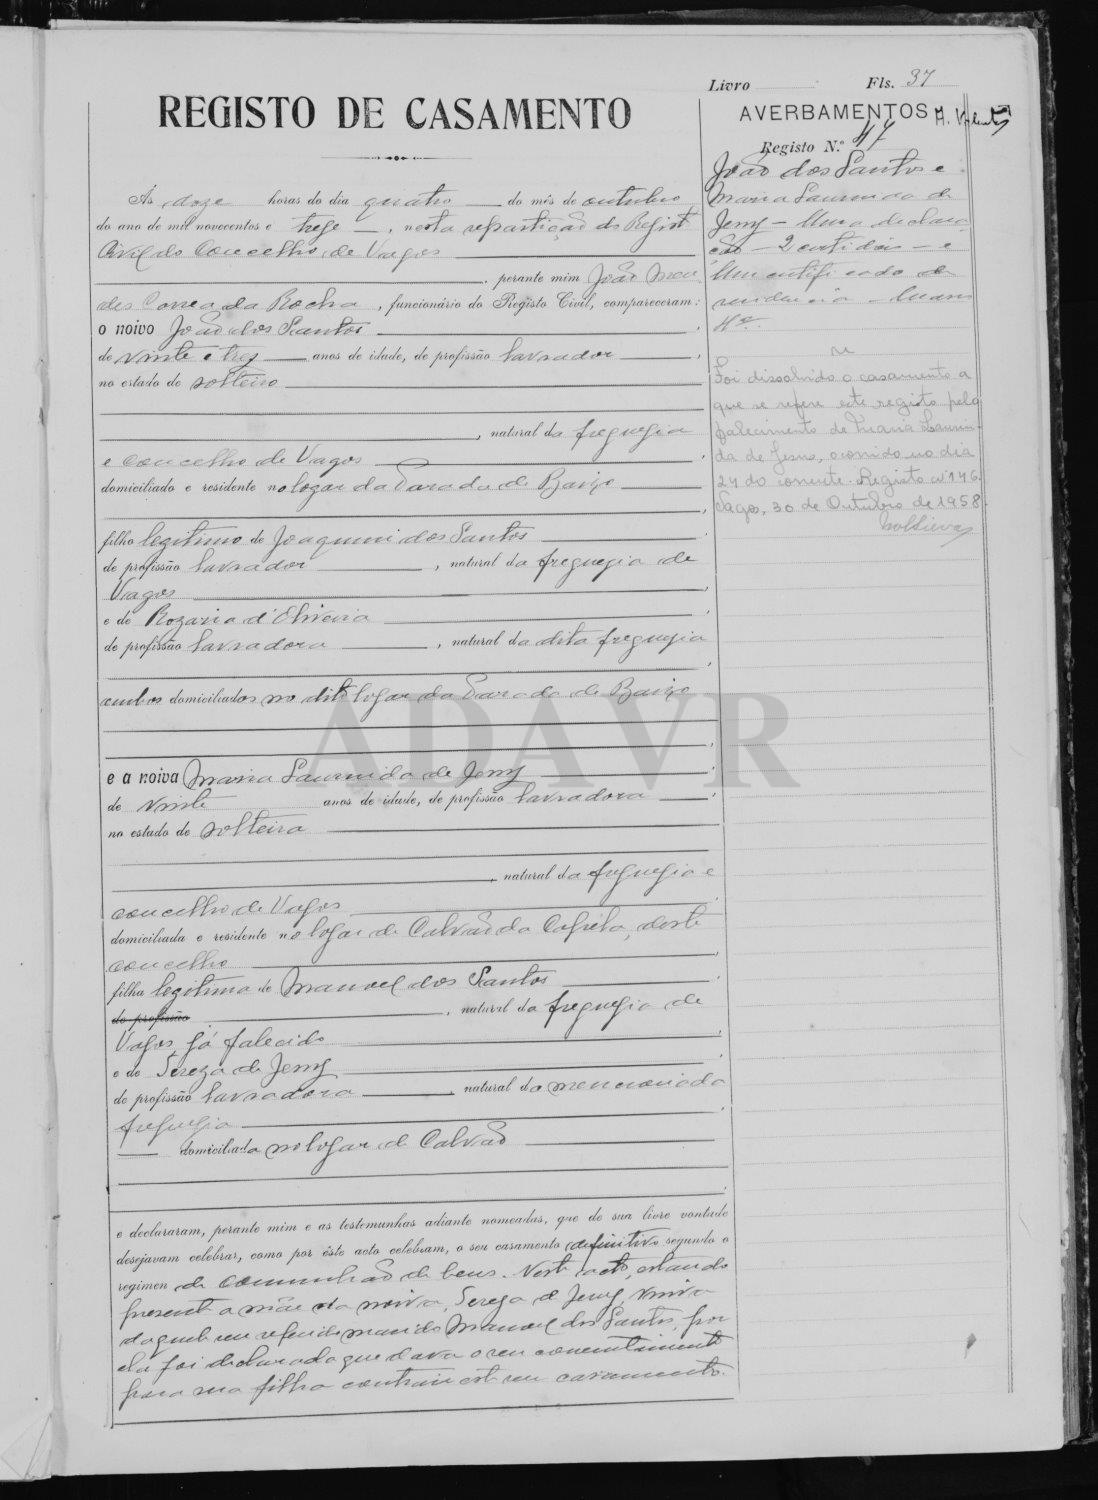 Livro Fls. 37
REGISTO DE CASAMENTO
AVERBAMENTOS
Registo N.º 47
João dos Santos e
Maria Laurinda de
Jesus - Uma declara
ção - 2 certidões - e
Um certificado de
residencia - Maço
Nº
Foi dissolvido o casamento a
que se refere este registo pelo
falecimento de Maria Laurin-
da de Jesus, ocorrido no dia
24 do corrente. Registo nº 146.
Vagos, 30 de Outubro de 1958.
Ás doze horas do dia quatro do mês de outubro
do ano de mil novecentos e treze, nesta repartição do Registo
Civil do Concelho de Vagos
, perante mim João Men
des Correa da Rocha, funcionário do Registo Civil, compareceram:
o noivo João dos Santos
de vinte e trez anos de idade, de profissão lavrador,
no estado de solteiro
, natural da freguezia
e concelho de Vagos,
domiciliado e residente no logar da Parada de Baixo
,
filho legitimo de Joaquim dos Santos
de profissão lavrador, natural da freguezia de
Vagos,
e de Rozaria d'Oliveira
de profissão lavradora, natural da dita freguezia
,
ambos domiciliados no dito logar da Parada de Baixo
,
e a noiva Maria Laurinda de Jesus,
de vinte anos de idade, de profissão lavradora,
no estado de solteira
, natural da freguezia e
concelho de Vagos,
domiciliada e residente no logar de Calvão da Capela, deste
concelho,
filha legitima de Manoel dos Santos
de profissão, natural da freguezia de
Vagos, já falecido,
e de Tereza de Jesus
de profissão lavradora, natural da mencionada
freguezia,
domiciliada no logar de Calvão
,
e declararam, perante mim e as testemunhas adiante nomeadas, que de sua livre vontade
desejavam celebrar, como por êste acto celebram, o seu casamento definitivo segundo o
regimen de comunhão de bens. Neste acto, estando
presente a mãe da noiva, Tereza de Jesus, viuva
daquele seu referido marido Manoel dos Santos, por
ela foi declarado que dava o seu consentimento
para sua filha contrair este seu casamento.
ADAVR